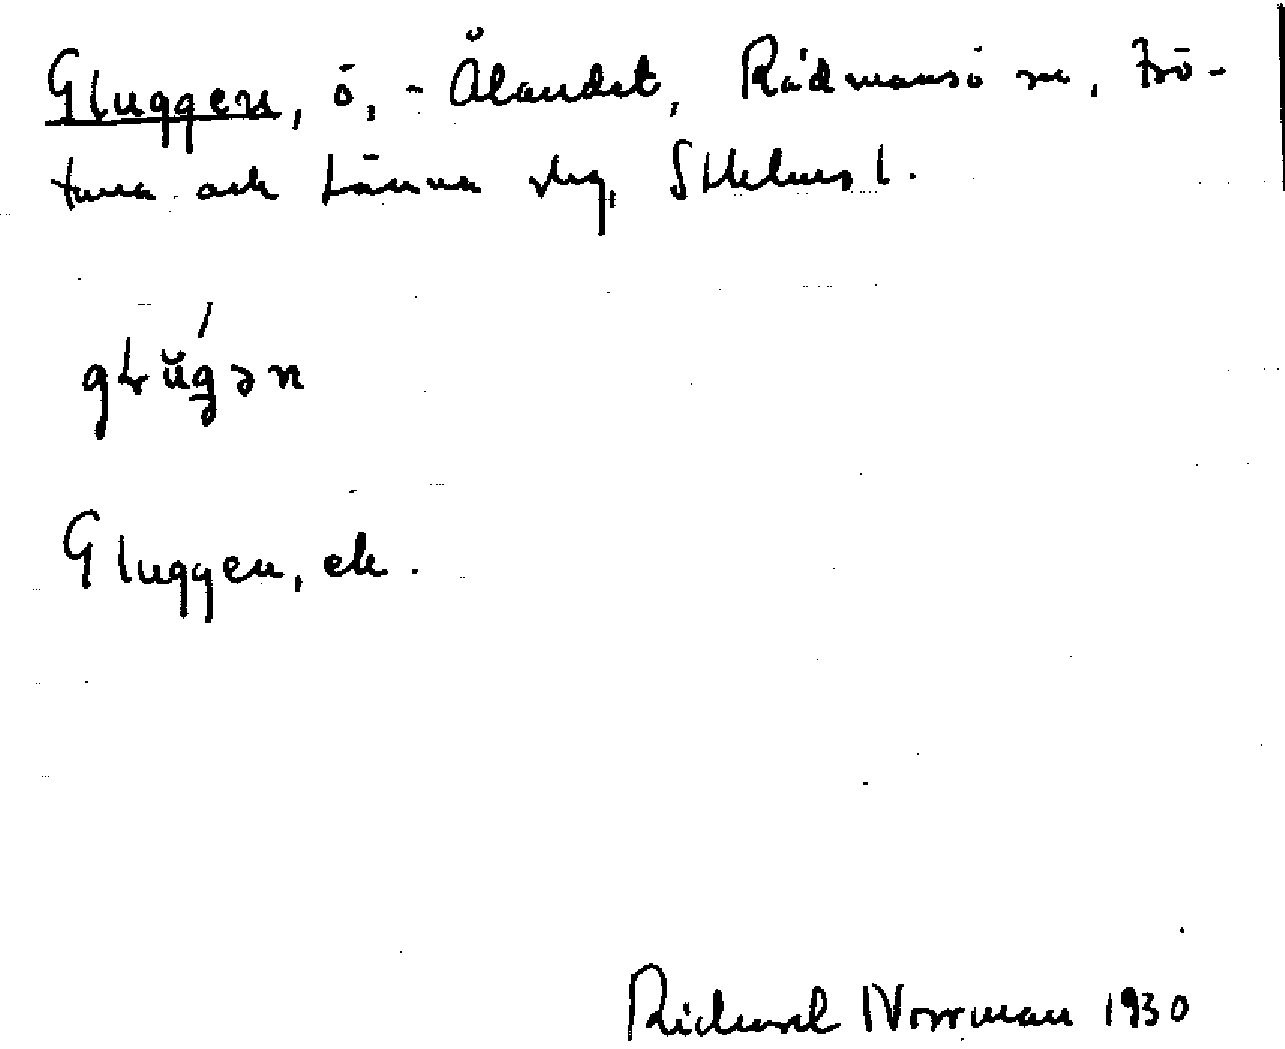 Gluggen, ö, - Ålandet, Rådmansö sn, Frö-
tuna och Länna skg, Sthlms l.
gɫŭg̡ən
Gluggen, ek.
Richard Norrman 1930